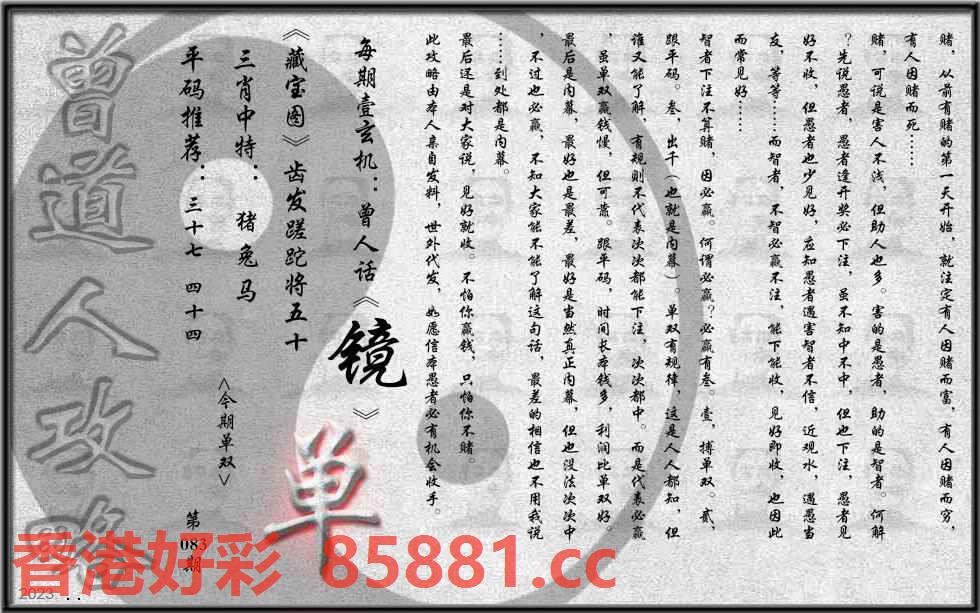 赌，从前有赌的第一天开始，就注定有人因赌而富，有人因赌而穷，
有人因赌而死……
赌，可说是害人不浅，但助人也多。害的是愚者，助的是智者。何解
？先说愚者，愚者逢开奖必下注，虽不知中不中，但也下注，愚者见
好不收，但愚者也少见好，应知愚者遇害智者不信，近观水，遇愚当
友，等等……而智者，不智必赢不注，能下能收，见好即收，也因此
而常见好……
智者下注不算赌，因必赢。何谓必赢？必赢有叁。壹，搏单双。贰，
跟平码。叁，出千（也就是内幕）。单双有规律，这是人人都知，但
谁又能了解，有规则不代表次次都能下注，次次都中。而是代表必赢
，虽单双赢钱慢，但可靠。跟平码，时间长本钱多，利润比单双好。
最后是内幕，最好也是最差，最好是当然真正内幕，但也没法次次中
，不过也必赢，不知大家能不能了解这句话，最差的相信也不用我说
……到处都是内幕。
最后还是对大家说，见好就收。不怕你赢钱，只怕你不赌。
此攻略由本人亲自发料，世外代发，如愿信本愚者必有机会收手。
每期壹玄机：曾人话《镜》
《藏宝图》齿发蹉跎将五十
三肖中特：猪兔马
平码推荐：三十七 四十四
<今期单双>
单
第083期
曾道人攻略
香港好彩 85881.cc
2023